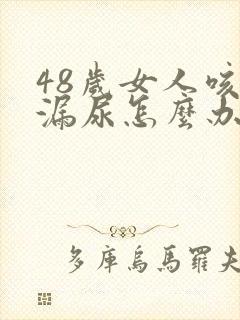 48歲女人咳
漏尿怎麼办
多庫烏馬羅夫